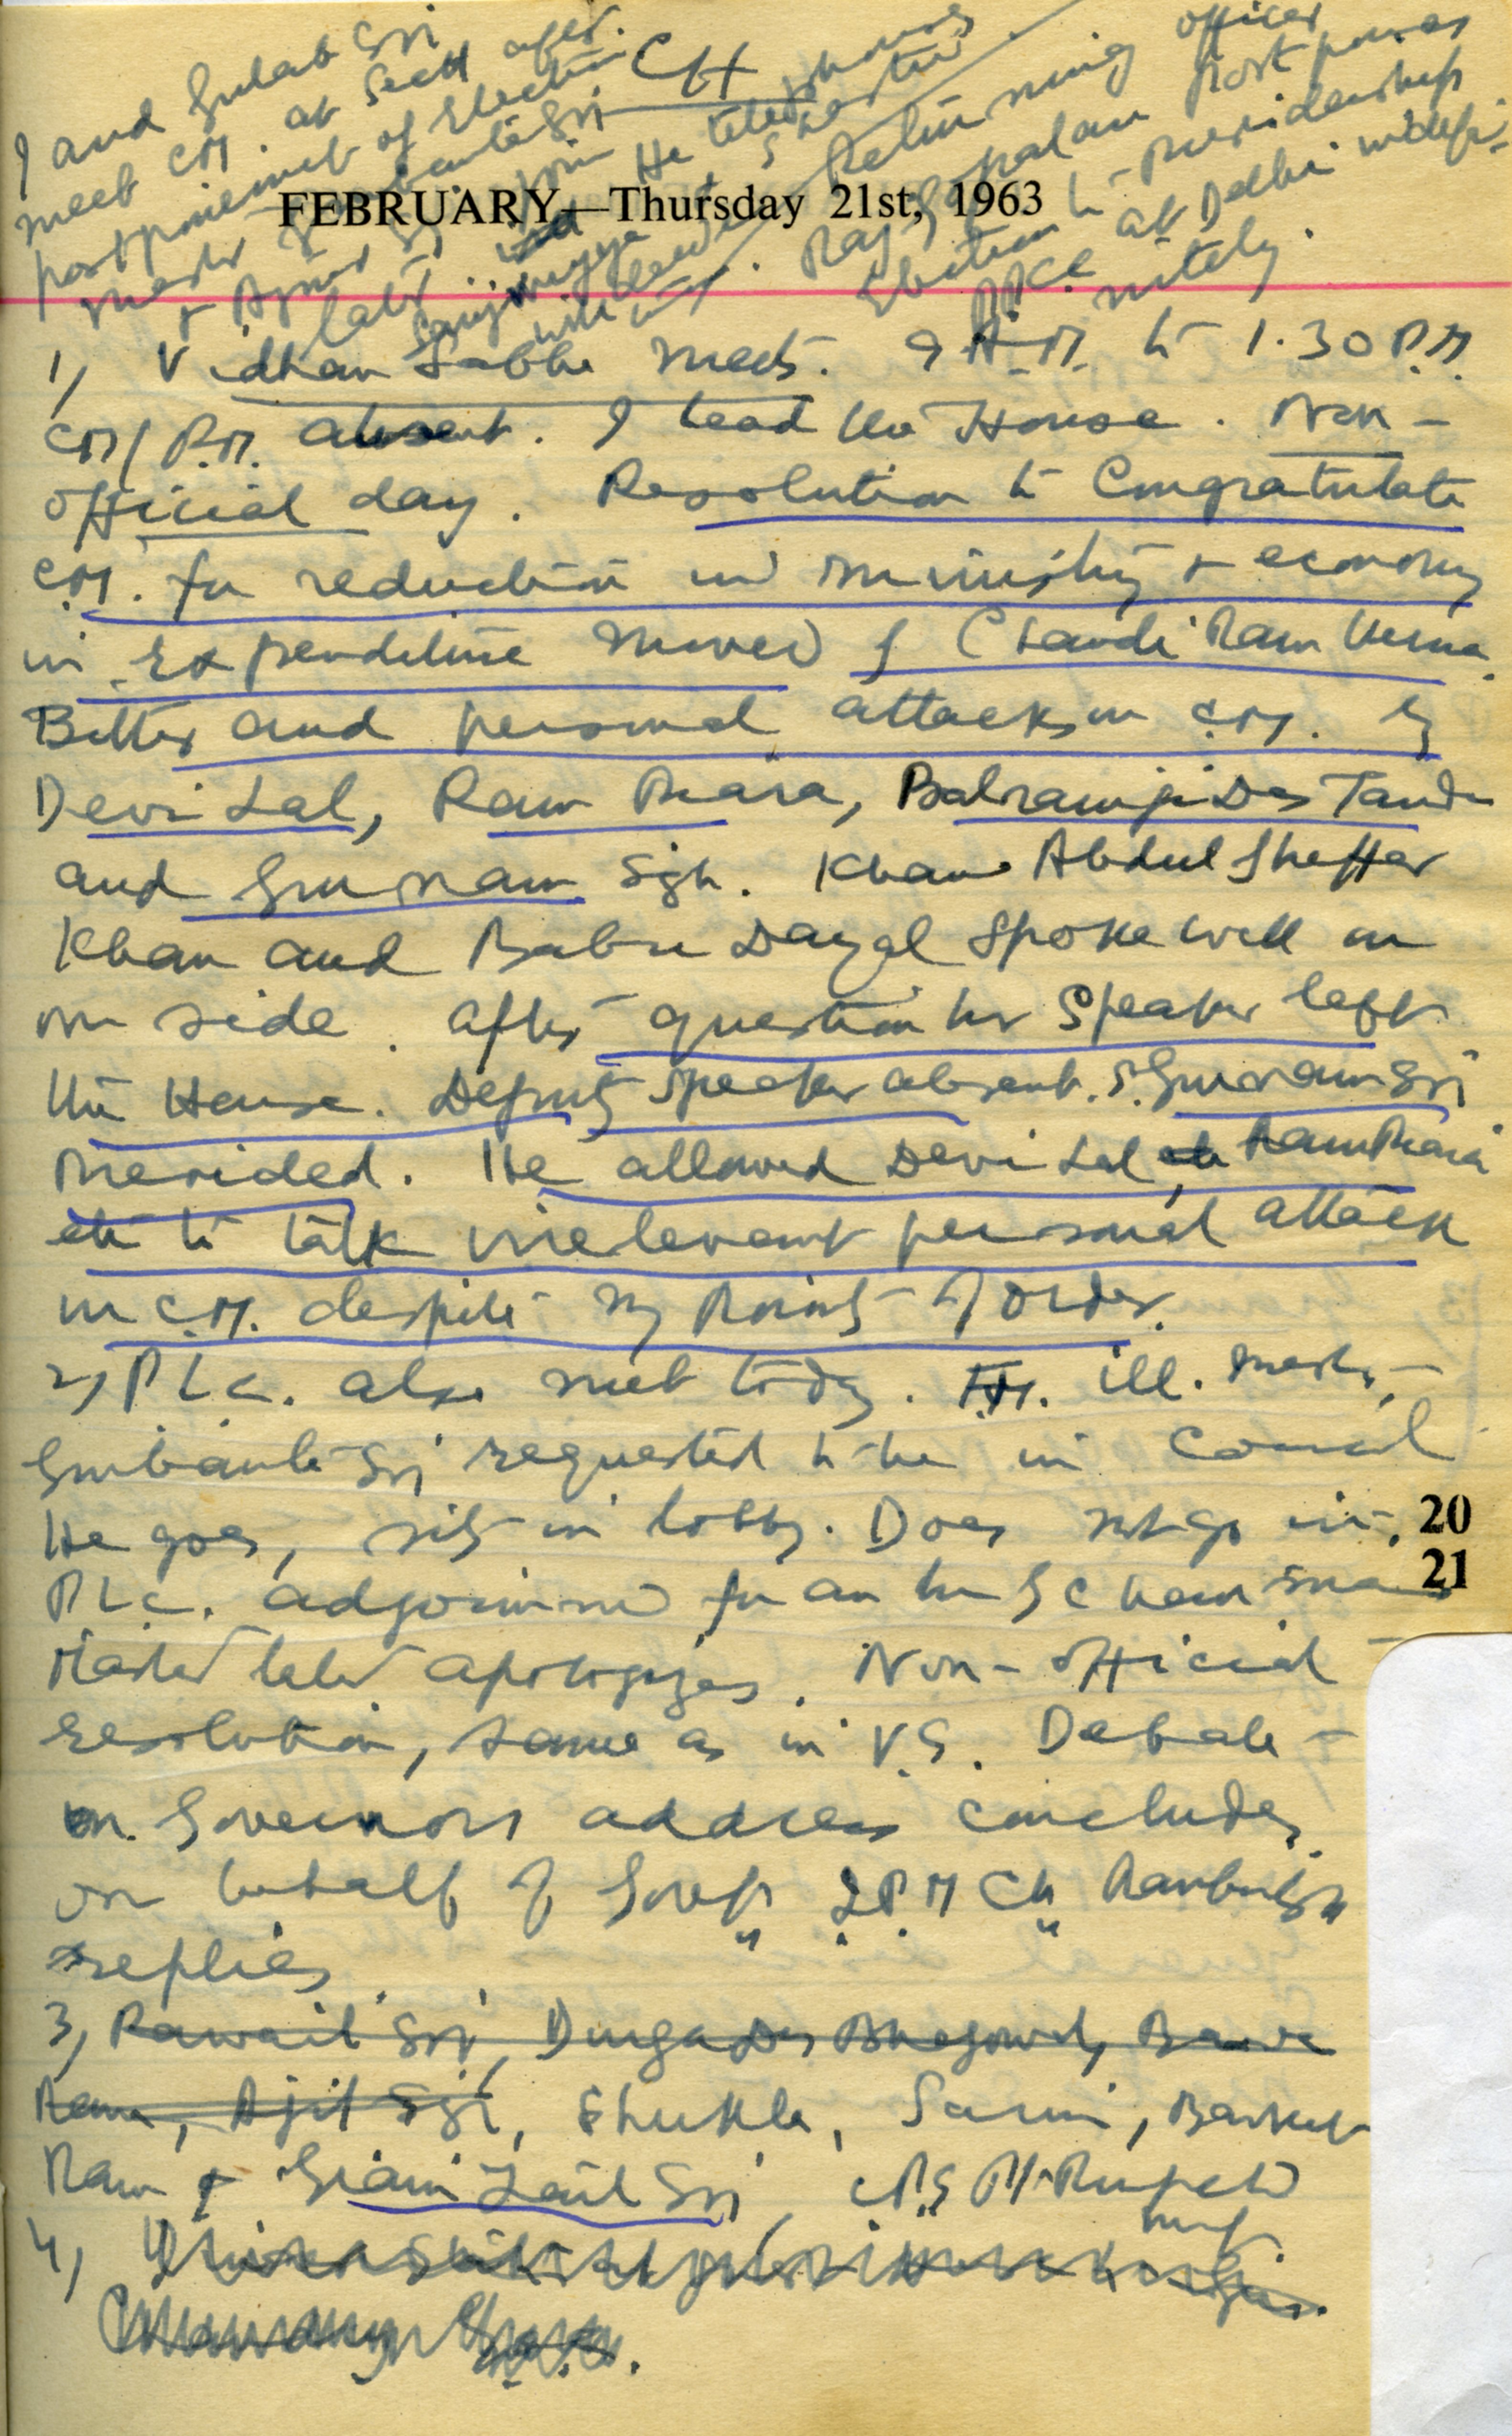 CH
I and Gulab Sri
meet CM. at Sectt after
postponement of Election
Master Gurbanta Sri
+ Ajmer Sri join He telephones
later
Returning officer
Rajgopalan postpones
Election to presidentship
PPCC at Delhi indefi-
nitely.
FEBRUARY—Thursday 21st, 1963
1, Vidhan Sabha meets. 9 A.M. to 1.30 P.M.
CM/P.M. absent. I lead the House. Non-
official day. Resolution to Congratulate
C.M. for reduction in ministry + economy
in Expenditure moved by Chandi Ram Verma.
Bitter and personal attacks on C.M. by
Devi Lal, Ram Piara, Balramji Das Tandon
and Gurnam Sgh. Khan Abdul Gheffar
Khan and Babu Dayal spoke well on
our side. After question hr Speaker left
the House. Deputy Speaker absent. S. Gurnam Sri
presided. He allowed Devi Lal, Ram Piara
etc to talk irrelevant personal attack
on C.M. despite my Points of Order.
2, P.L.C. also met today. F.M. ill. Master
Gurbanta Sri requested to be in Council
He goes, sits in lobby. Does not go in.
20
P.L.C. adjourned for an hr
21
Master later apologizes. Non-official
resolution, same as in V.S. Debate
on Governors address concludes
on behalf of Govt. I.P.M Ch. Ranbir Sgh
replies.
3, Rawail Sri, Durga Das Bhagowal, Bawa
Rama, Ajit Sgh, Shukla, Sarin, Barkat
Ram + Giani Zail Sri, Rupar
meet.
4,